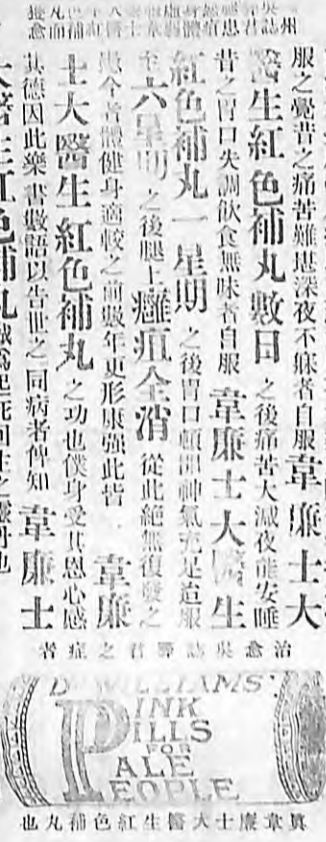 服之覺昔之痛苦難堪深夜不寐者自服韋廉士大
醫生紅色補丸數日之後痛苦大減夜能安睡
昔之胃口失調飲食無味者自服韋廉士大醫生
紅色補丸一星期之後胃口頓開神氣充足迨服
至六星期之後腿上癰疽全消從此絕無復發之
患今者體健身適較之前數年更形康強此皆韋廉
士大醫生紅色補丸之功也僕身受其恩心感
其德因此樂書數語以告世之同病者俾知韋廉士
大醫生紅色補丸誠爲起死回生之靈丹也
治愈吳誌聯君之症者
DR WILLIAMS'
PINK
PILLS
FOR
PALE
PEOPLE
眞韋廉士大醫生紅色補丸也